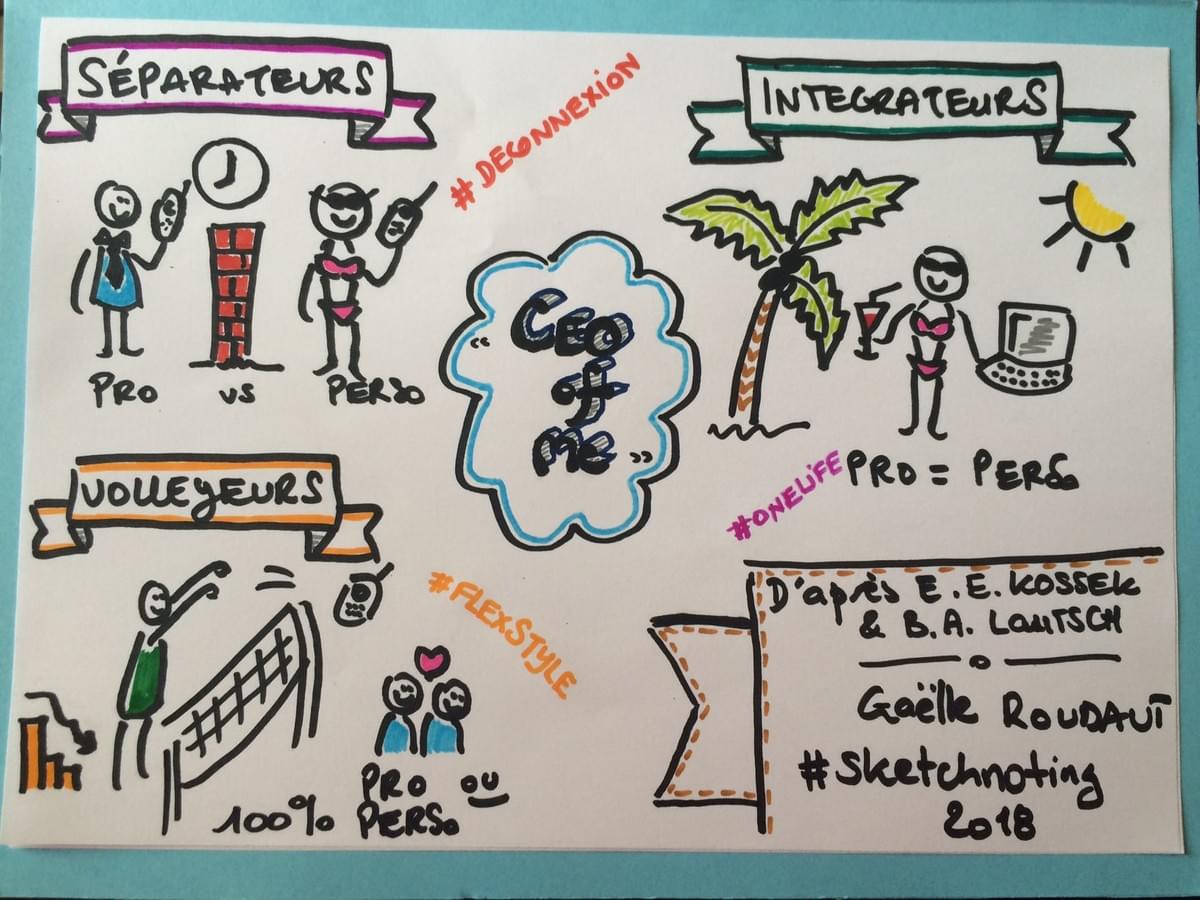 SÉPARATEURS
#DECONNEXION
PRO vs PERSO
INTEGRATEURS
PRO = PERSO
#ONELIFE
"CEO
of
Me"
VOLLEYEURS
#FLEXSTYLE
100% PRO ou
PERSO
D'après E. E. KOSSEK
& B. A. LAUTSCH
Gaëlle ROUDAUT
#Sketchnoting
2018